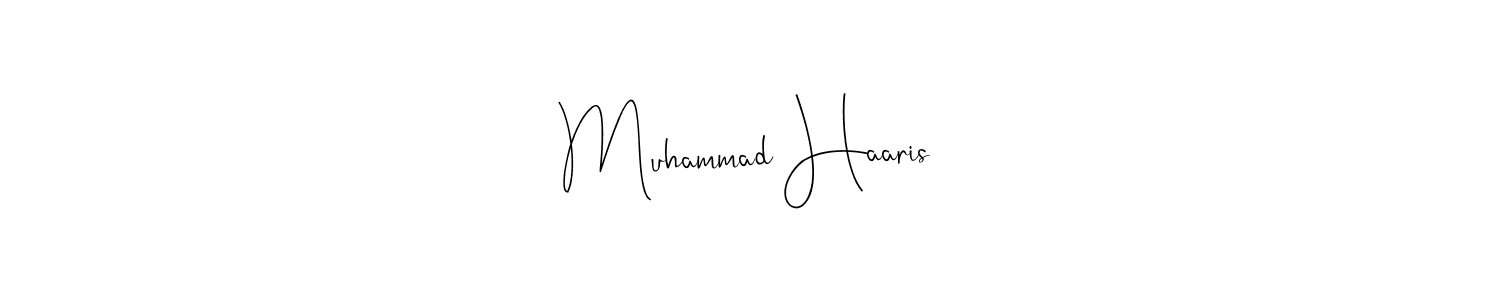 Muhammad Haaris